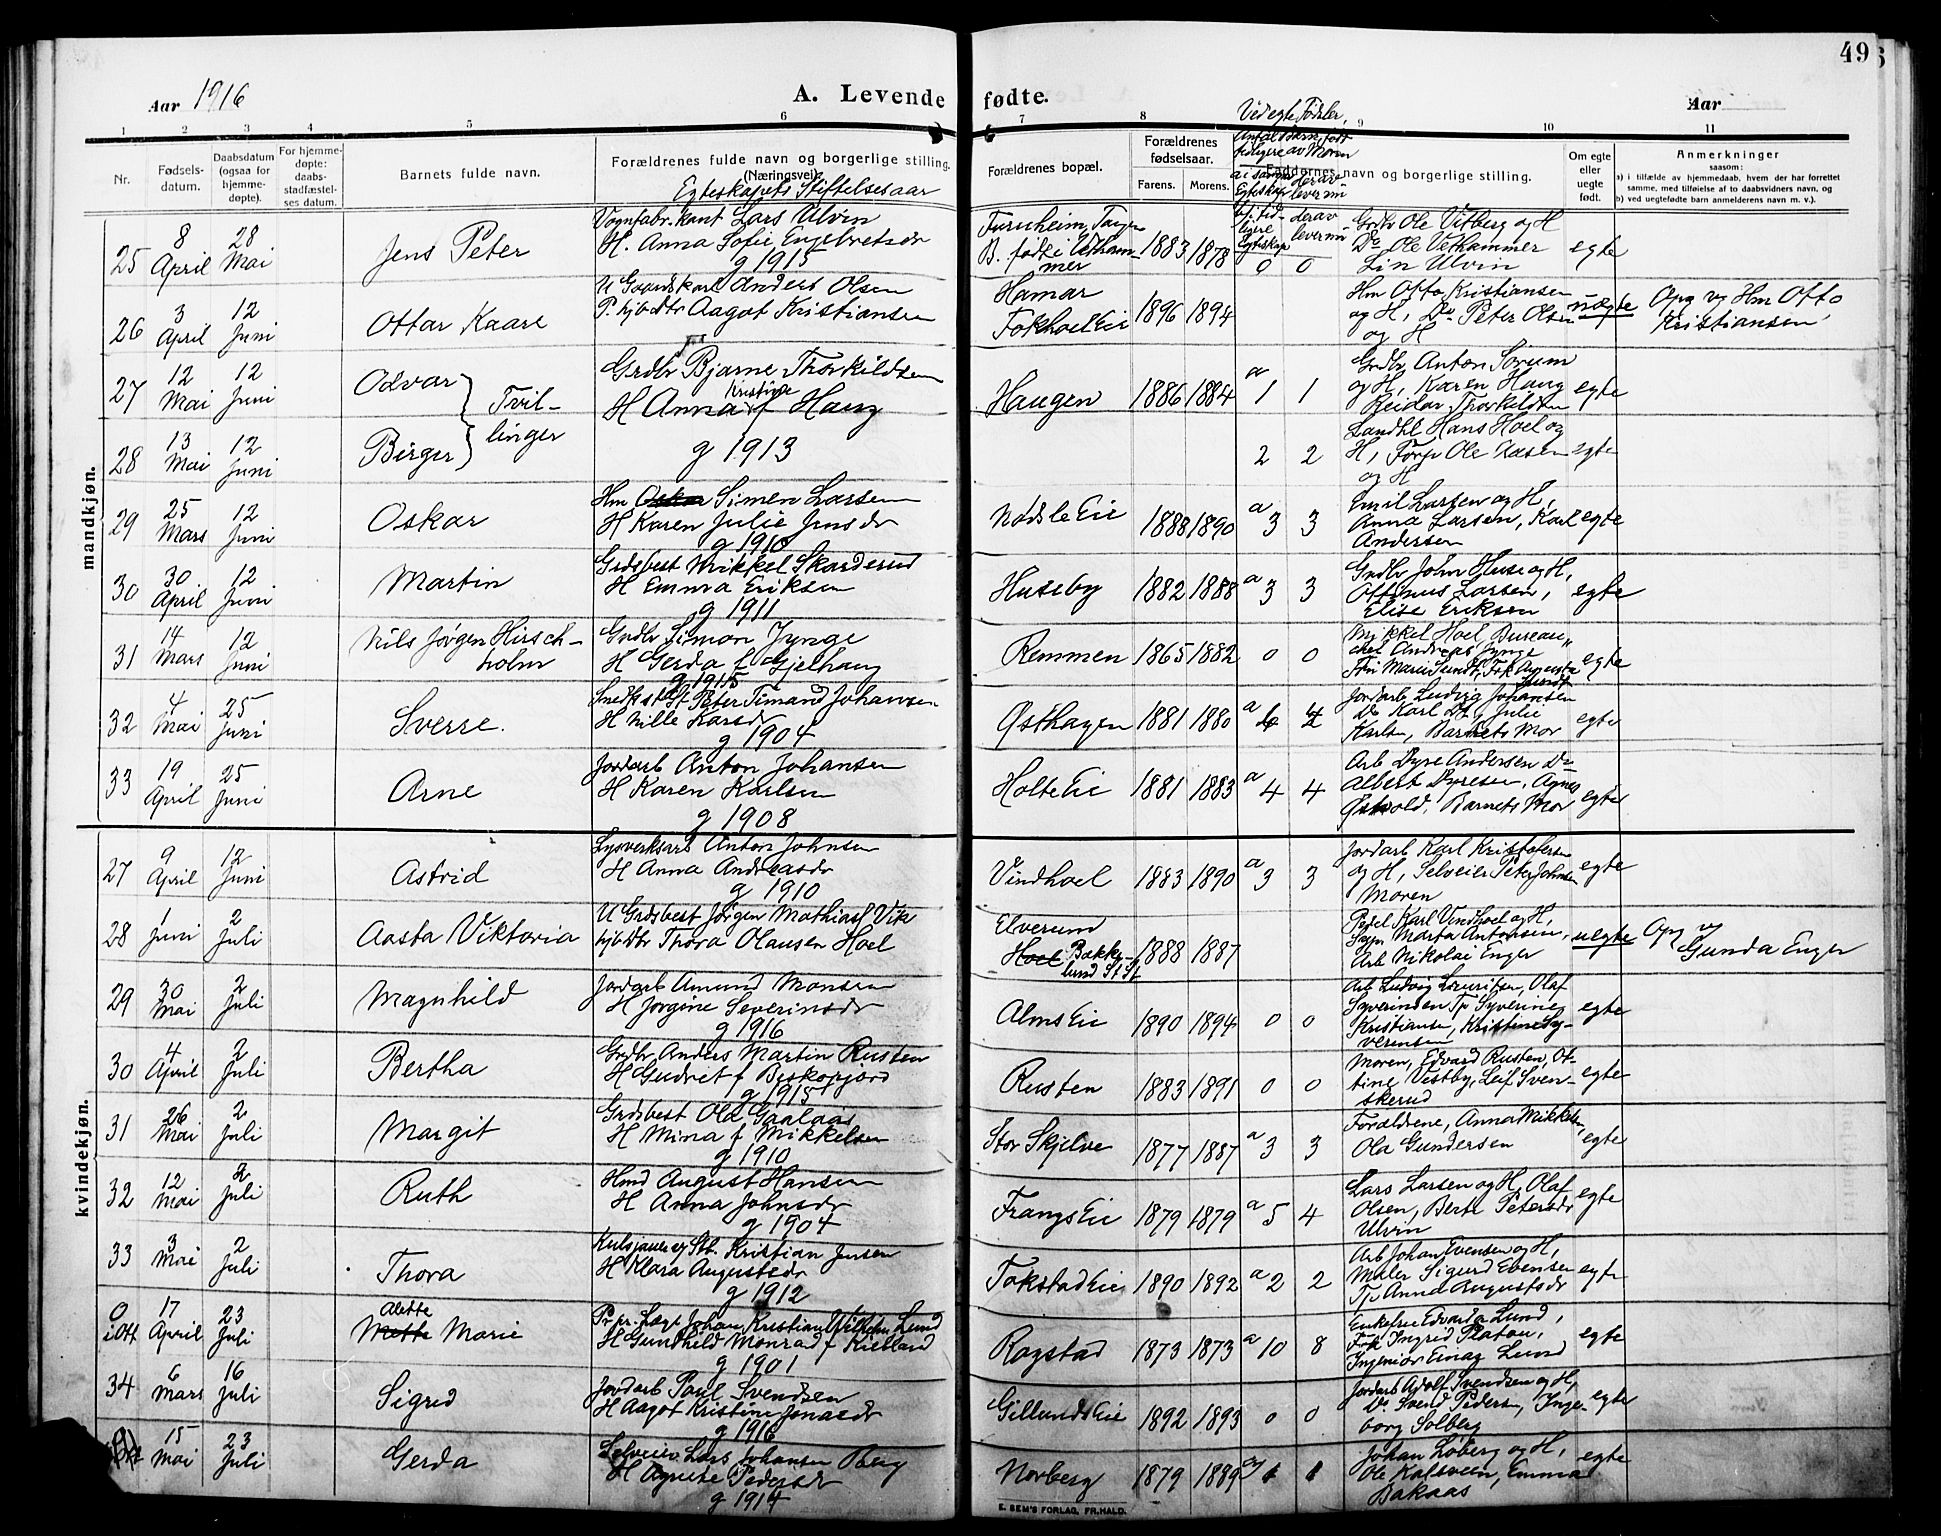 49
Aar 1916
A. Levende fødte.
Aar
1 2 3 4 5 6 7 8 9 10 11
Nr.
Fødsels-
datum.
Daabsdatum
(ogsaa for
hjemme-
døpte).
For hjemme-
døpte:
daabs-
stadfæstel-
ses datum.
Barnets fulde navn.
Forældrenes fulde navn og borgerlige stilling.
(Næringsvei).
Egteskapets Stiftelsesaar
Forældrenes bopæl.
Forældrenes
fødselsaar.
Farens. Morens.
Ved egte Fødsler,
Faddernes navn og borgerlige stilling.
Om egte
eller
uegte
født.
Anmerkninger
saasom:
a) i tilfælde av hjemmedaab, hvem der har forrettet
samme, med tilføielse af to daabsvidners navn, og
b) ved uegtefødte barn anmelderens navn m. v.).
mandkjøn.
25 8 April 28 Mai Jens Peter
Vognfabrikant Lars Ulvin
H. Anna Sofie Engebretsdr
g 1915
Furuheim, Tangen
1883 1878 0 0
Grdbr Ole Vitberg og H
Do Ole Vethammer
Lin Ulvin
egte
26 3 April 12 Juni Ottar Kaare
U Gaardskarl Anders Olsen
P. hjv dtr Aagot Kristiansen
Hamar
Fokhol Eie
1896 1894
Hm Otto Kristiansen
og H, Do Peter Olsen
og H
uegte
Opg v Hm Otto
Kristiansen
27 12 Mai 12 Juni Odvar } Tvil-
Grdbr Bjarne Thorkildsen
H Anna Kristine f Haug
Haugen 1886 1884 a 1 1
Grdbr Anton Sørum
og H, Karen Haug
Reidar Thorkildsen
egte
28 13 Mai 12 Juni Birger } linger
g 1913
2 2
Landhl Hans Hoel og
H, Forp Ole Aasen
og H
egte
29 25 Mars 12 Juni Oskar
Hm Simen Larsen
H Karen Julie Jensdr
g 1910
Nødsle Eie 1888 1890 a 3 3
Emil Larsen og H,
Anna Larsen, Karl
Andersen
egte
30 30 April 12 Juni Martin
Grdsbest Mikkel Skarderud
H Emma Eriksen
g 1911
Huseby 1882 1888 a 3 3
Grdbr John Huse og H,
Ottinus Larsen,
Elise Eriksen
egte
31 14 Mars 12 Juni Nils Jørgen Hirsch-
holm
Grdbr Simon Jynge
H Gerda f Gjelhaug
g 1915
Remmen 1865 1882 0 0
Mikkel Hoel, Bureau-
chef Andreas Jynge
Fru Marie Sundt, Frk Augusta
Sundt
egte
32 4 Mai 25 Juni Sverre.
Peter Timand Johansen
H Nille Larsdr
g 1904
Østhagen 1881 1880 a 6 4
Jordarb Ludvig Johansen
Do Karl Do, Julie
Karlsen, Barnets Mor
egte
33 19 April 25 Juni Arne
Jordarb Anton Johansen
H Karen Karlsen
g 1908
Holte Eie 1881 1883 a 4 4
Arb Dyre Andersen Do
Albert Dyresen, Agnes
Østvold, Barnets Mor
egte
kvindekjøn.
27 9 April 12 Juni Astrid
Lysverksarb Anton Johnsen
H Anna Andreasdr
g 1910
Vindhoel 1883 1890 a 3 3
Jordarb Karl Kristofersen
og H, Selveier Peter Johnsen
Moren
egte
28 1 Juni 2 Juli Aasta Viktoria
U Grdsbest Jørgen Mathias Vik
hjv Dtr Thora Olausen Hoel
Elverum
Hoel Bakke-
lund St St
1888 1887
Pedel Karl Vindhoel og H,
Syp Marta Antonsen,
Arb Nikolai Enger
uegte
Opg v
Gunda Enger
29 30 Mai 2 Juli Magnhild
Jordarb Amund Monsen
H Jørgine Severinsdr
g 1916
Alms Eie 1890 1894 0 0
Arb Ludvig Lauritsen, Olaf
Syverinsen Tp Syverine
Kristiansen, Kristine Sy-
verinsen
egte
30 4 April 2 Juli Bertha
Grdbr Anders Martin Rusten
H Gudrid f Beskopjord
g 1915
Rusten 1883 1891 0 0
Moren, Edvard Rusten, Ot-
tine Vestby, Leif Sven-
skerud
egte
31 26 Mai 2 Juli Margit
Grdsbest Ola Gaalaas
H Mina f Mikkelsen
g 1910
Stor Skjelve 1877 1887 a 3 3
Forældrene, Anna Mikkelsen,
Ola Gundersen
egte
32 12 Mai 2 Juli Ruth
Hmd August Hansen
H Anna Johnsdr
g 1904
Frangs Eie 1879 1879 a 5 4
Lars Larsen og H, Olaf
Olsen, Berte Petersdr
Ulvin
egte
33 3 Mai 2 Juli Thora
Kristian Jensen
H Klara Augustsdr
g 1912
Fokstad Eie 1890 1892 a 2 2
Arb Johan Evensen og H,
Maler Sigurd Evensen
Tp Anna Augustsdr
egte
0 17 April 23 Juli Alette
Mette Marie
Pr. pr. Læge Johan Kristian Wilhelm Lund
H Gundhild Monrad f Kielland
g 1901
Rogstad 1873 1873 a 10 8
Enkefru Edvarda Lund,
Frk Ingrid Platou,
Ingeniør Einar Lund
egte
34 6 Mars 16 Juli Sigrid
Jordarb Paul Svendsen
H Aagot Kristine Jonasdr
g 1916
Gillunds Eie 1892 1893 0 0
Jordarb Adolf Svendsen og H,
Do Svend Pedersen, Inge-
borg Solberg
egte
15 Mai 23 Juli Gerda
Selveier Lars Johansen Berg
H Agnete Pedersdr
g 1914
Norberg 1879 1889 1 1
Johan Løberg og H,
Ole Kalsveen, Emma
Bakaas
egte
E. SEM'S FORLAG, FR.HALD.